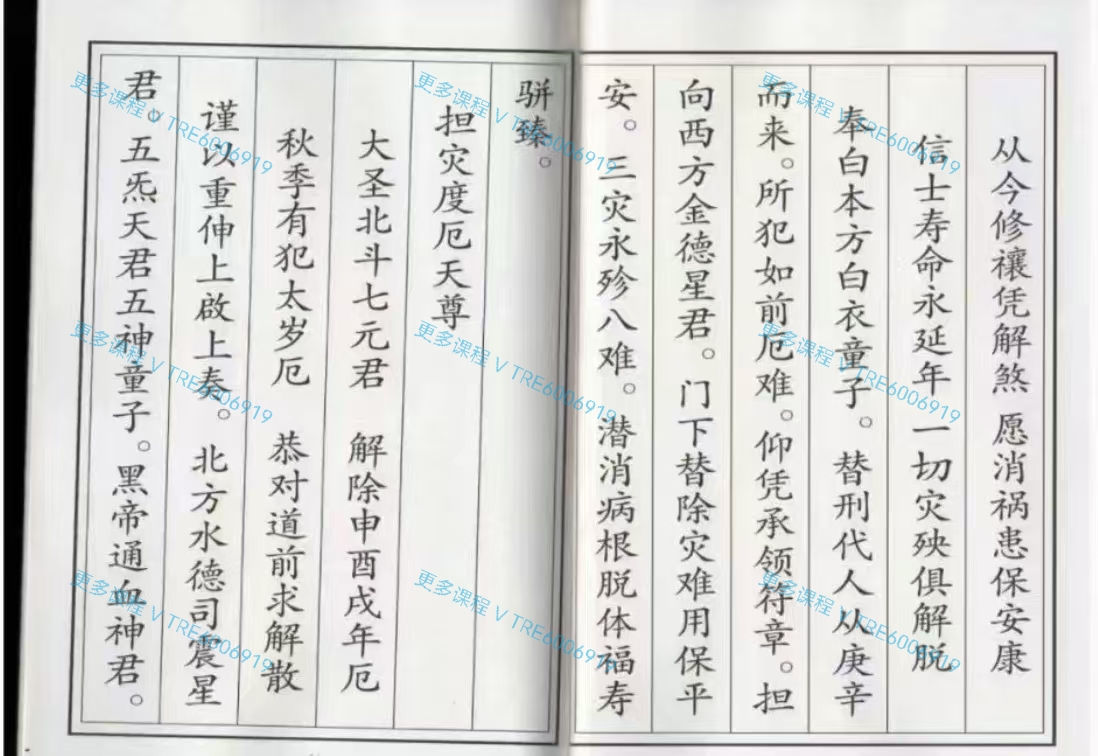 从今修禳凭解煞 愿消祸患保安康
信士寿命永延年一切灾殃俱解脱
奉白本方白衣童子。替刑代人从庚辛
而来。所犯如前厄难。仰凭承领符章。担
向西方金德星君。门下替除灾难用保平
安。三灾永殄八难。潜消病根脱体福寿
骈臻。
担灾度厄天尊
大圣北斗七元君 解除申酉戌年厄
秋季有犯太岁厄 恭对道前求解散
谨以重伸上啟上奏。北方水德司震星
君。五炁天君五神童子。黑帝通血神君。
更多课程 V TRE6006919
更多课程 V TRE6006919
更多课程 V TRE6006919
更多课程 V TRE6006919
更多课程 V TRE6006919
更多课程 V TRE6006919
更多课程 V TRE6006919
更多课程 V TRE6006919
更多课程 V TRE6006919